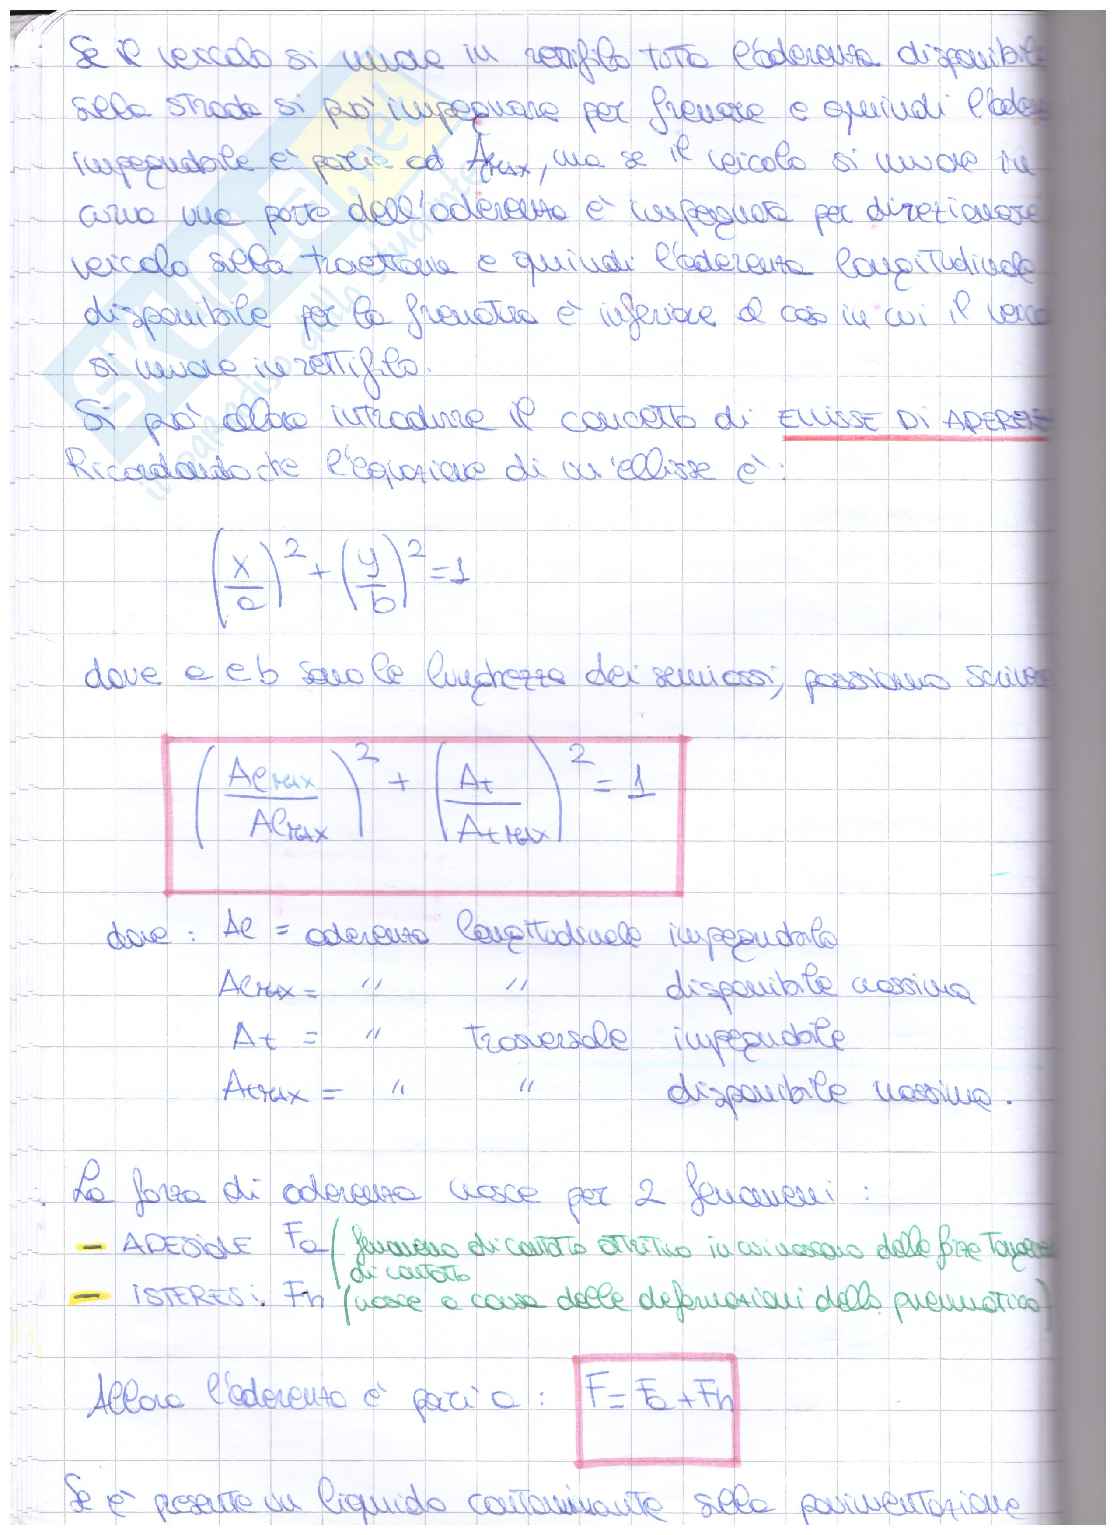 Se il veicolo si muove in rettifilo tutta l'aderenza disponibile
sulla strada si può impegnare per frenare e quindi l'ader
impegnabile è pari ad Aemax, ma se il veicolo si muove in
curva una parte dell'aderenza è impegnata per direzionare
veicolo sulla traiettoria e quindi l'aderenza longitudinale
disponibile per la frenatura è inferiore al caso in cui il veico
si muove in rettifilo.
Si può allora introdurre il concetto di ELLISSE DI ADEREN
Ricordando che l'equazione di un'ellisse è:
(x/a)² + (y/b)² = 1
dove a e b sono le lunghezze dei semiassi, possiamo scrivere
(Aemax/Aemax)² + (At/Atmax)² = 1
dove: Ae = aderenza longitudinale impegnabile
Aemax = " " disponibile massima
At = " trasversale impegnabile
Atmax = " " disponibile massima.
La forza di aderenza nasce per 2 fenomeni:
- ADESIONE Fa (fenomeno di contatto attritivo in cui nascono delle forze
di contatto
- ISTERESI: Fh (nasce a causa delle deformazioni dello pneumatico)
Allora l'aderenza è pari a: F = Fa + Fh
Se è presente un liquido contaminante sulla pavimentazione
SKUOLA.net
il paradiso dello studente